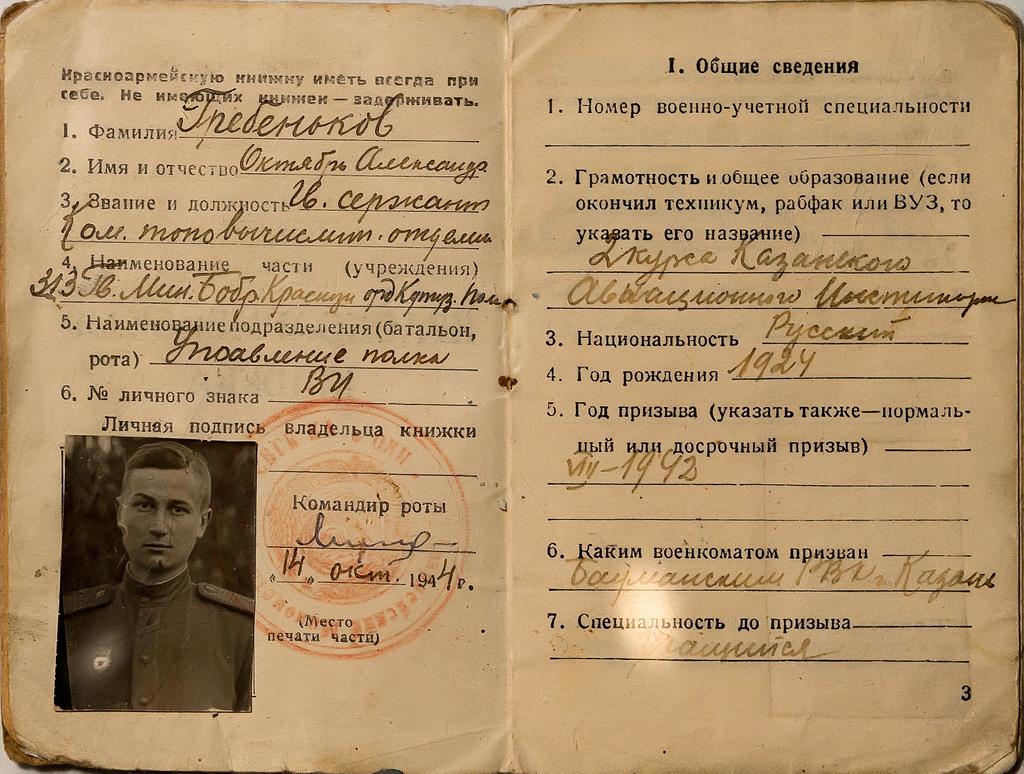 Красноармейскую книжку иметь всегда при
себе. Не имеющих книжек — задерживать.
1. Фамилия Гребеньков
2. Имя и отчество Октябрь Александр.
3. Звание и должность Гв. сержант
Ком. топовычислит. отделен.
4. Наименование части (учреждения)
313 Гв. Мин. Бобр. Красноз. орд Кутуз. Полк
5. Наименование подразделения (батальон,
рота) Управление полка
6. № личного знака ВУ
Личная подпись владельца книжки
Командир роты
„14" окт. 1944 г.
(Место
печати части)
I. Общие сведения
1. Номер военно-учетной специальности
2. Грамотность и общее образование (если
окончил техникум, рабфак или ВУЗ, то
указать его название)
2 курса Казанского
Авиационного Института
3. Национальность Русский
4. Год рождения 1924
5. Год призыва (указать также—нормаль-
ный или досрочный призыв)
VIII-1942
6. Каким военкоматом призван
Бауманским РВК г. Казань
7. Специальность до призыва
Учащийся
3